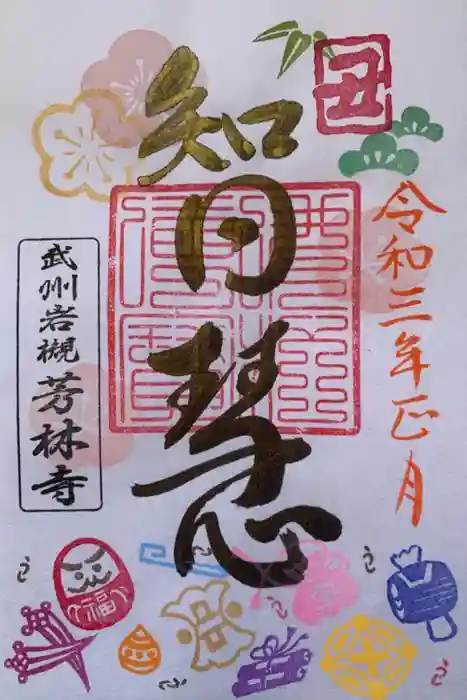 丑
令和三年正月
智慧
武州岩槻芳林寺
福